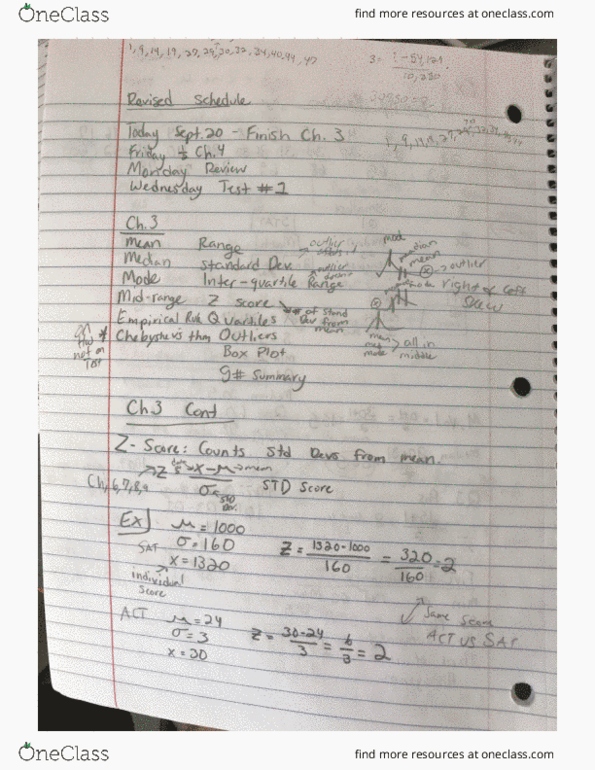 OneClass
find more resources at oneclass.com
1, 9, 14, 19, 27,
Revised Schedule
Today Sept. 20 - Finish Ch. 3
Friday ½ Ch. 4
Monday Review
Wednesday Test #1
Ch. 3
Mean Range outlier
Median Standard Dev.
Mode Inter-quartile Range
Mid-range Z score # of stand Dev from mean
Empirical Rule Quartiles
* Chebyshev's thm Outliers
not on Test
Box Plot
5# Summary
mode
median
mean
outlier
right or left
Skew
mean
med
mode
all in
middle
Ch 3 Cont
Z-Score: Counts Std Devs from mean.
Z = x - μ → mean
σ ← STD Dev.
STD Score
Ch, 6, 7, 8, 9
Ex) μ = 1000
SAT σ = 160
x = 1320
individual score
Z = 1320-1000 / 160 = 320 / 160 = 2
ACT μ = 24
σ = 3
x = 30
Z = 30-24 / 3 = 6 / 3 = 2
Same Score
ACT vs SAT
OneClass
find more resources at oneclass.com